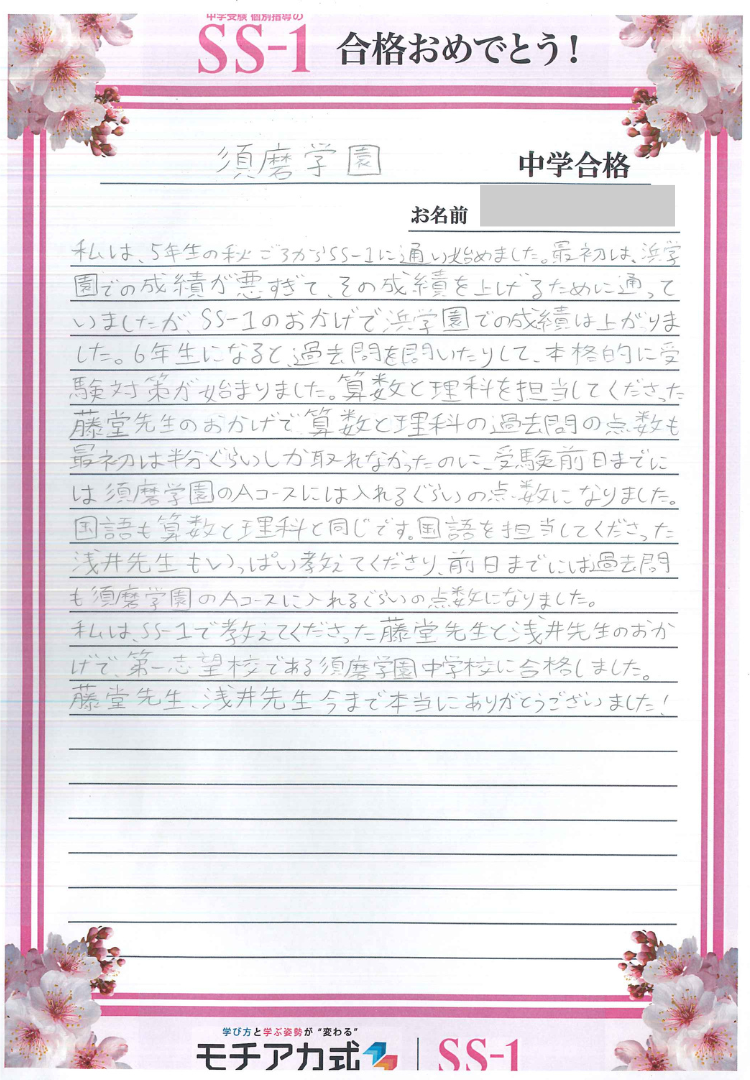 中学受験 個別指導の
SS-1 合格おめでとう!
須磨学園 中学合格
お名前
私は、5年生の秋ごろからSS-1に通い始めました。最初は、浜学
園での成績が悪すぎて、その成績を上げるために通って
いましたがSS-1のおかげで浜学園での成績は上がりま
した。6年生になると、過去問を聞いたりして、本格的に受
験対策が始まりました。算数と理科を担当してくださった
藤堂先生のおかげで算数と理科の過去問の点数も
最初は半分ぐらいしか取れなかったのに、受験前日までに
は須磨学園のAコースには入れるぐらいの点数になりました。
国語も算数と理科と同じです。国語を担当してくださった
浅井先生もいっぱい教えてくださり、前日までには過去問
も須磨学園のAコースに入れるぐらいの点数になりました。
私は、SS-1で教えてくださった藤堂先生と浅井先生のおか
げで、第一志望校である須磨学園中学校に合格しました。
藤堂先生、浅井先生今まで本当にありがとうございました!
学び方と学ぶ姿勢が“変わる”
モチアカ式 | SS-1